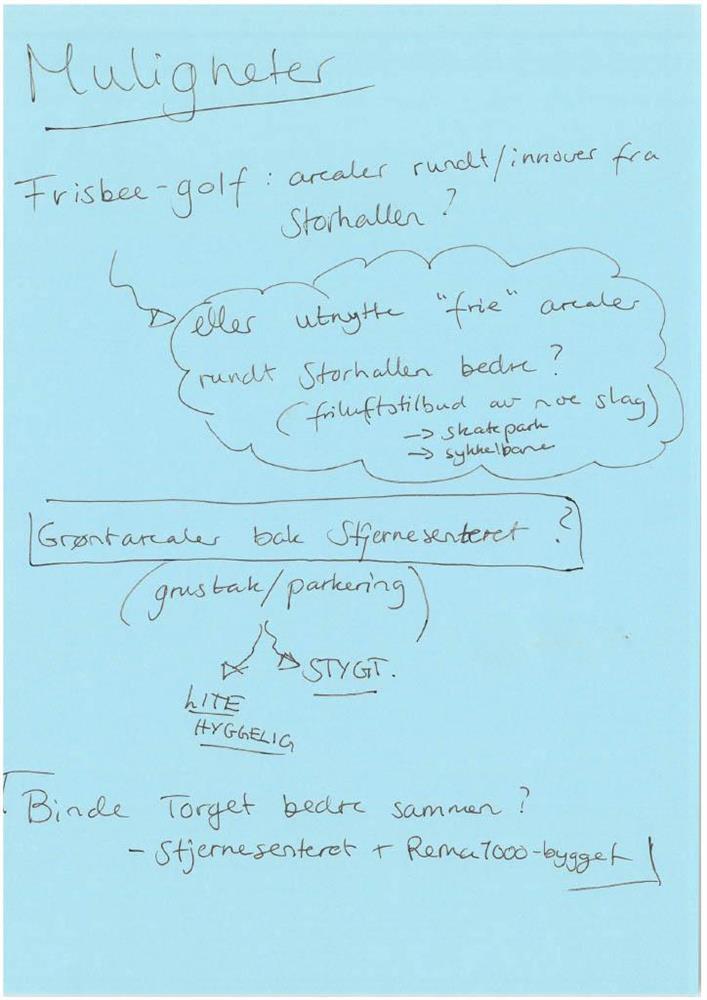 Muligheter
Frisbee-golf : arealer rundt/innover fra
Storhallen ?
eller utnytte "frie" arealer
rundt Storhallen bedre ?
(friluftstilbud av noe slag)
→ skatepark
→ sykkelbane
Grøntarealer bak Stjernesenteret ?
(grustak/parkering)
STYGT.
LITE
HYGGELIG
Binde Torget bedre sammen ?
- Stjernesenteret + Rema1000-bygget